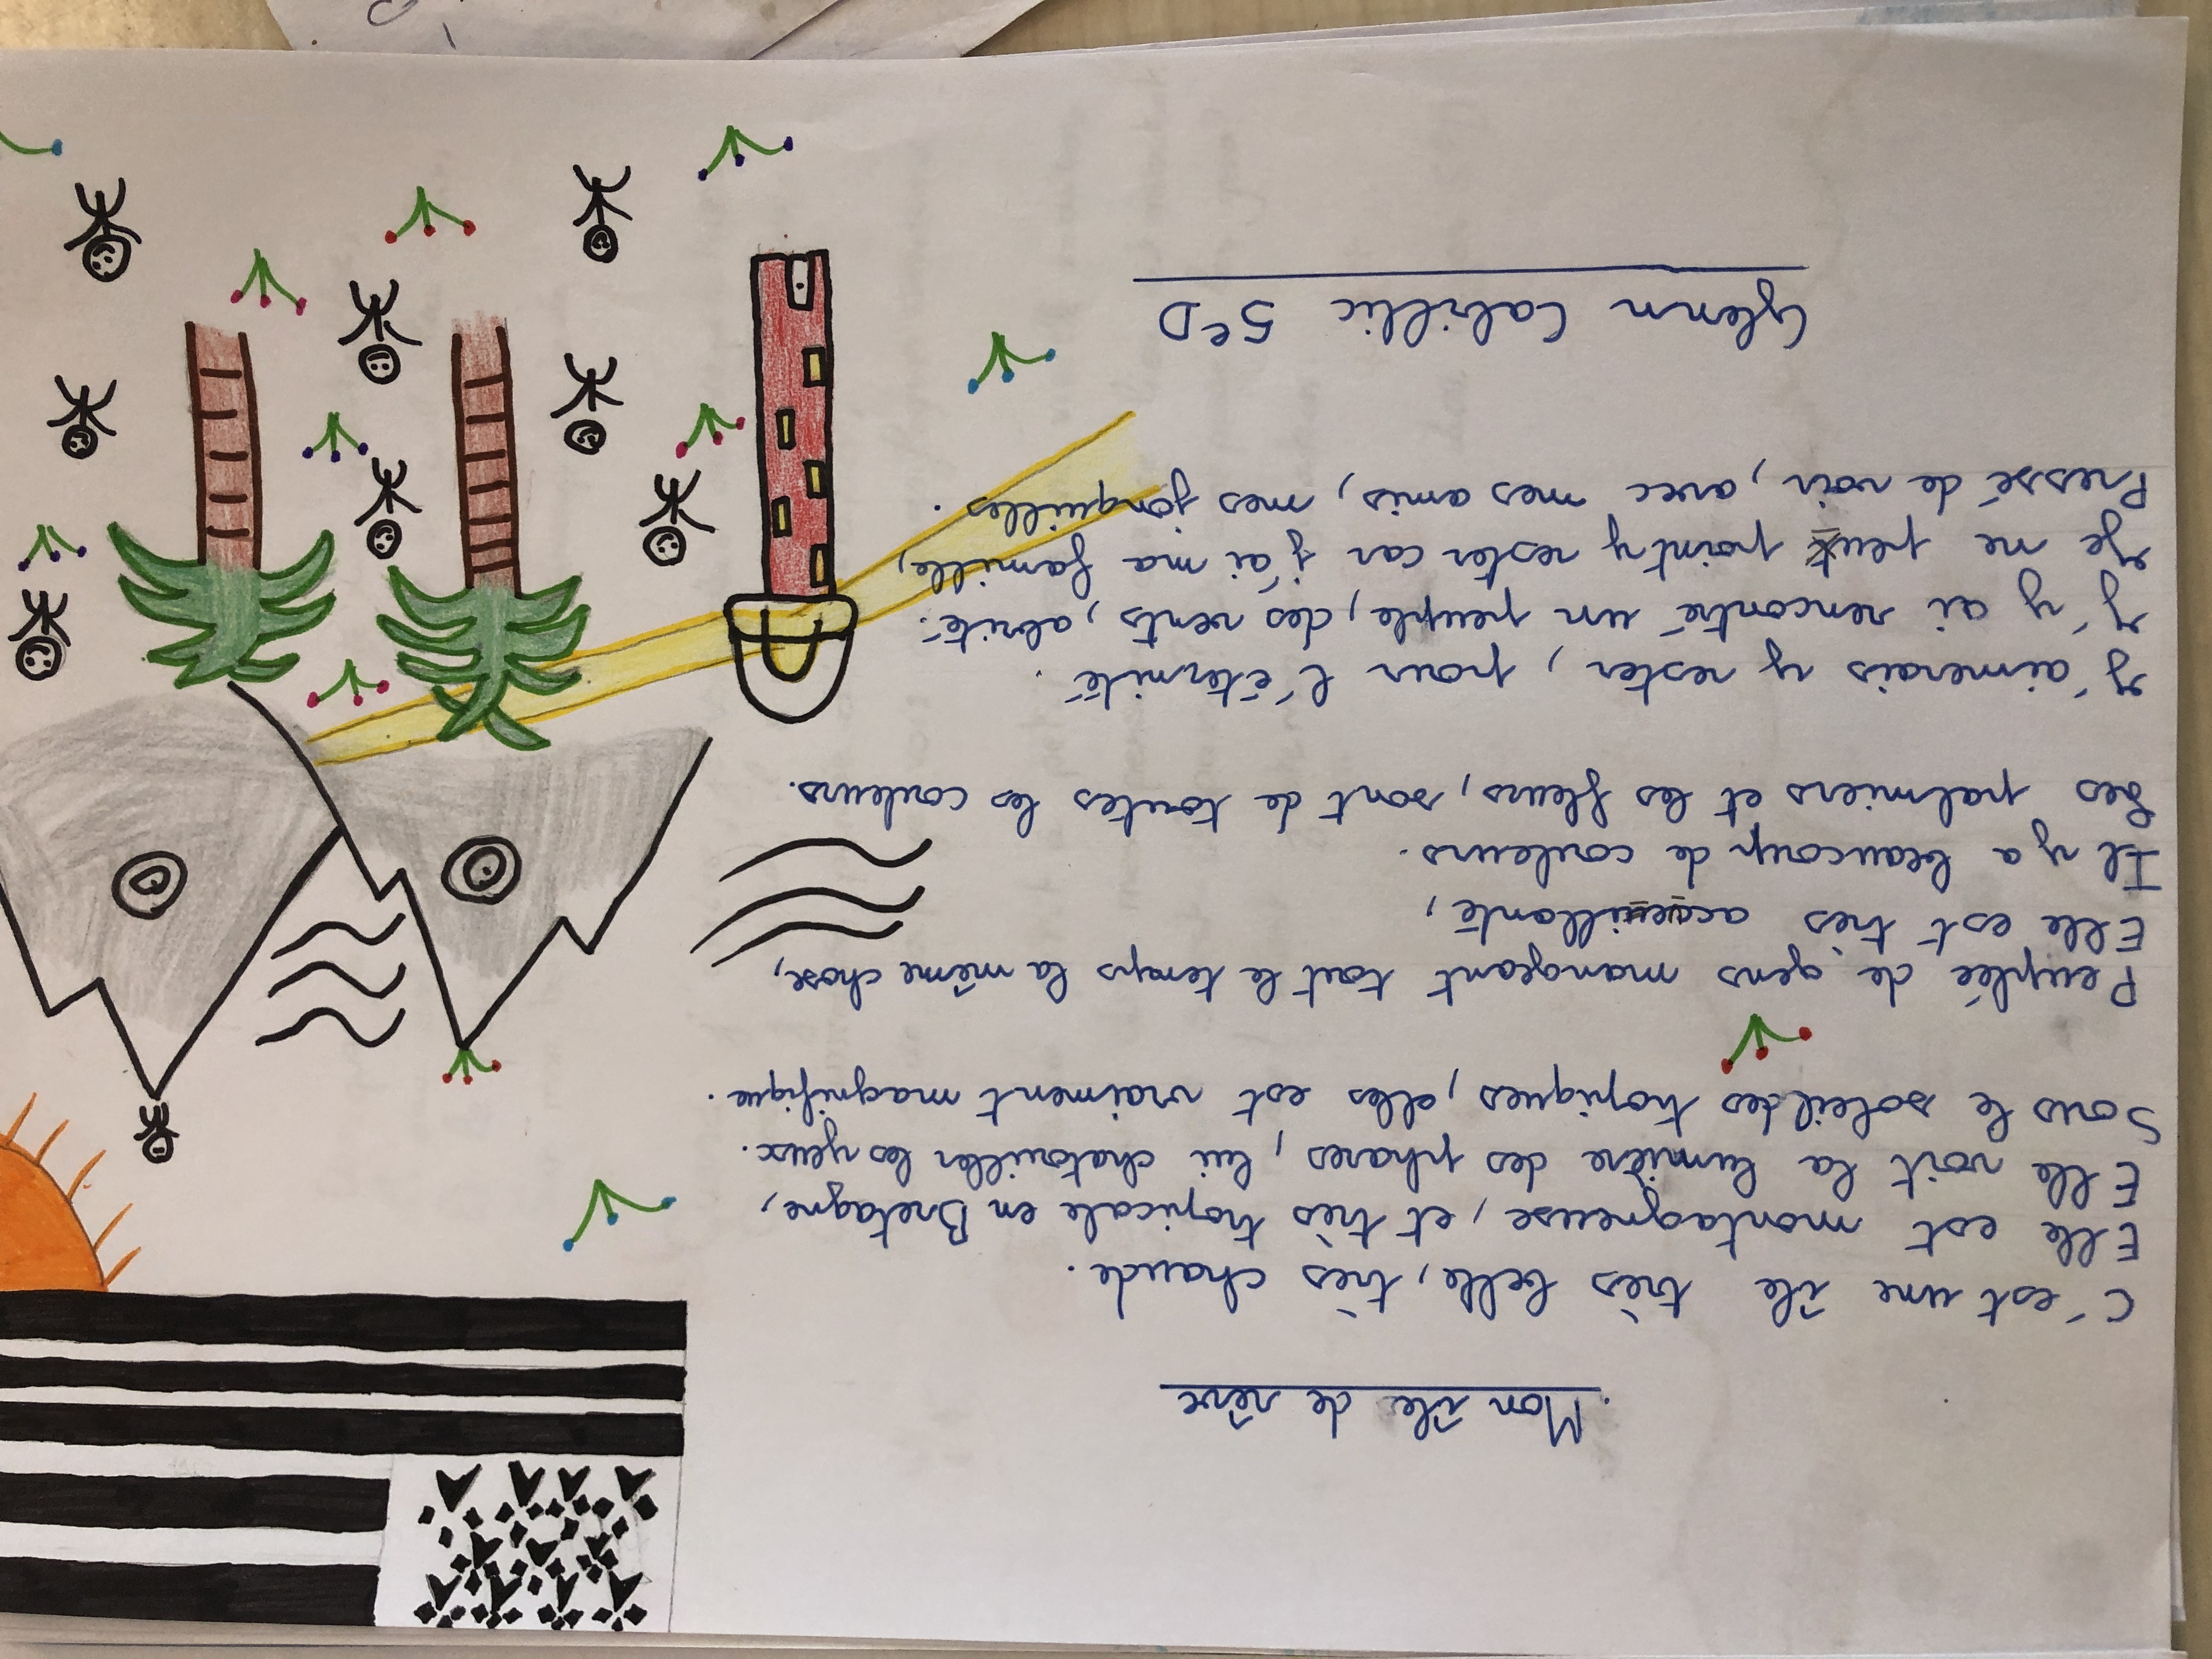 Mon île de rêve
C'est une île très belle, très chaude.
Elle est montagneuse, et très tropicale en Bretagne,
Elle voit la lumière des phares, lui chatouiller les yeux.
Sous le soleil des tropiques, elles est vraiment magnifique.
Peuplée de gens mangeant tout le temps la même chose,
Elle est très accueillante,
Il y a beaucoup de couleurs.
Les palmiers et les fleurs, sont de toutes les couleurs.
J'aimerais y rester, pour l'éternité.
J'y ai rencontré un peuple, des vents, abrité.
Je ne peux point y rester car j'ai ma famille,
Pressé de voir, avec mes amis, mes jonquilles.
Glenn Calillic 5eD